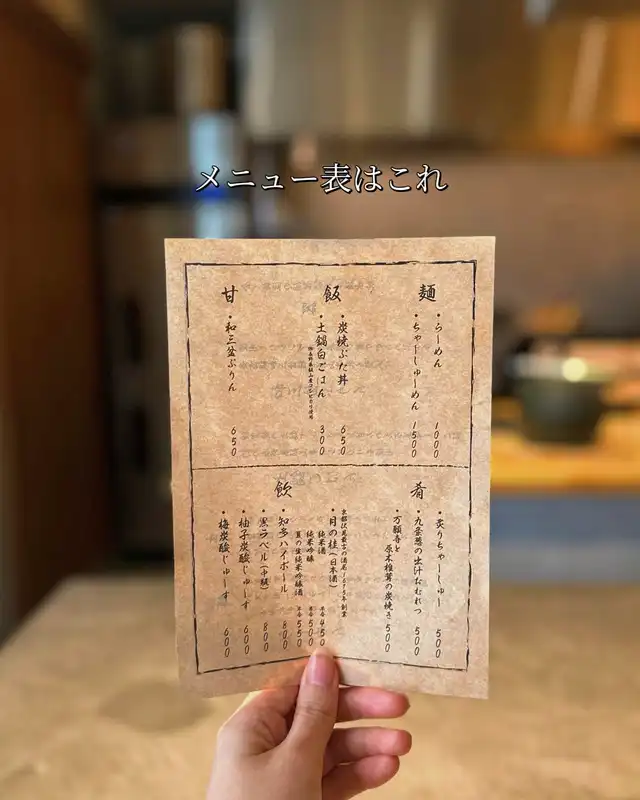 メニュー表はこれ
麺
・らーめん 1000
・ちゃーしゅーめん 1500
飯
・炭焼ぶた丼 650
・土鍋白ごはん 300
甘
・和三盆ぷりん 650
肴
・炙りちゃーしゅー 500
・九条葱の出汁おむれつ 500
・万願寺と
原木椎茸の炭焼き 500
飲
京都伏見最古の酒蔵 1675年創業
・月の桂(日本酒)
純米酒 半合 450
純米吟醸 半合 500
夏の生純米吟醸酒 半合 550
・知多ハイボール 800
・黒ラベル(中瓶) 800
・柚子炭酸じゅーす 600
・梅炭酸じゅーす 600